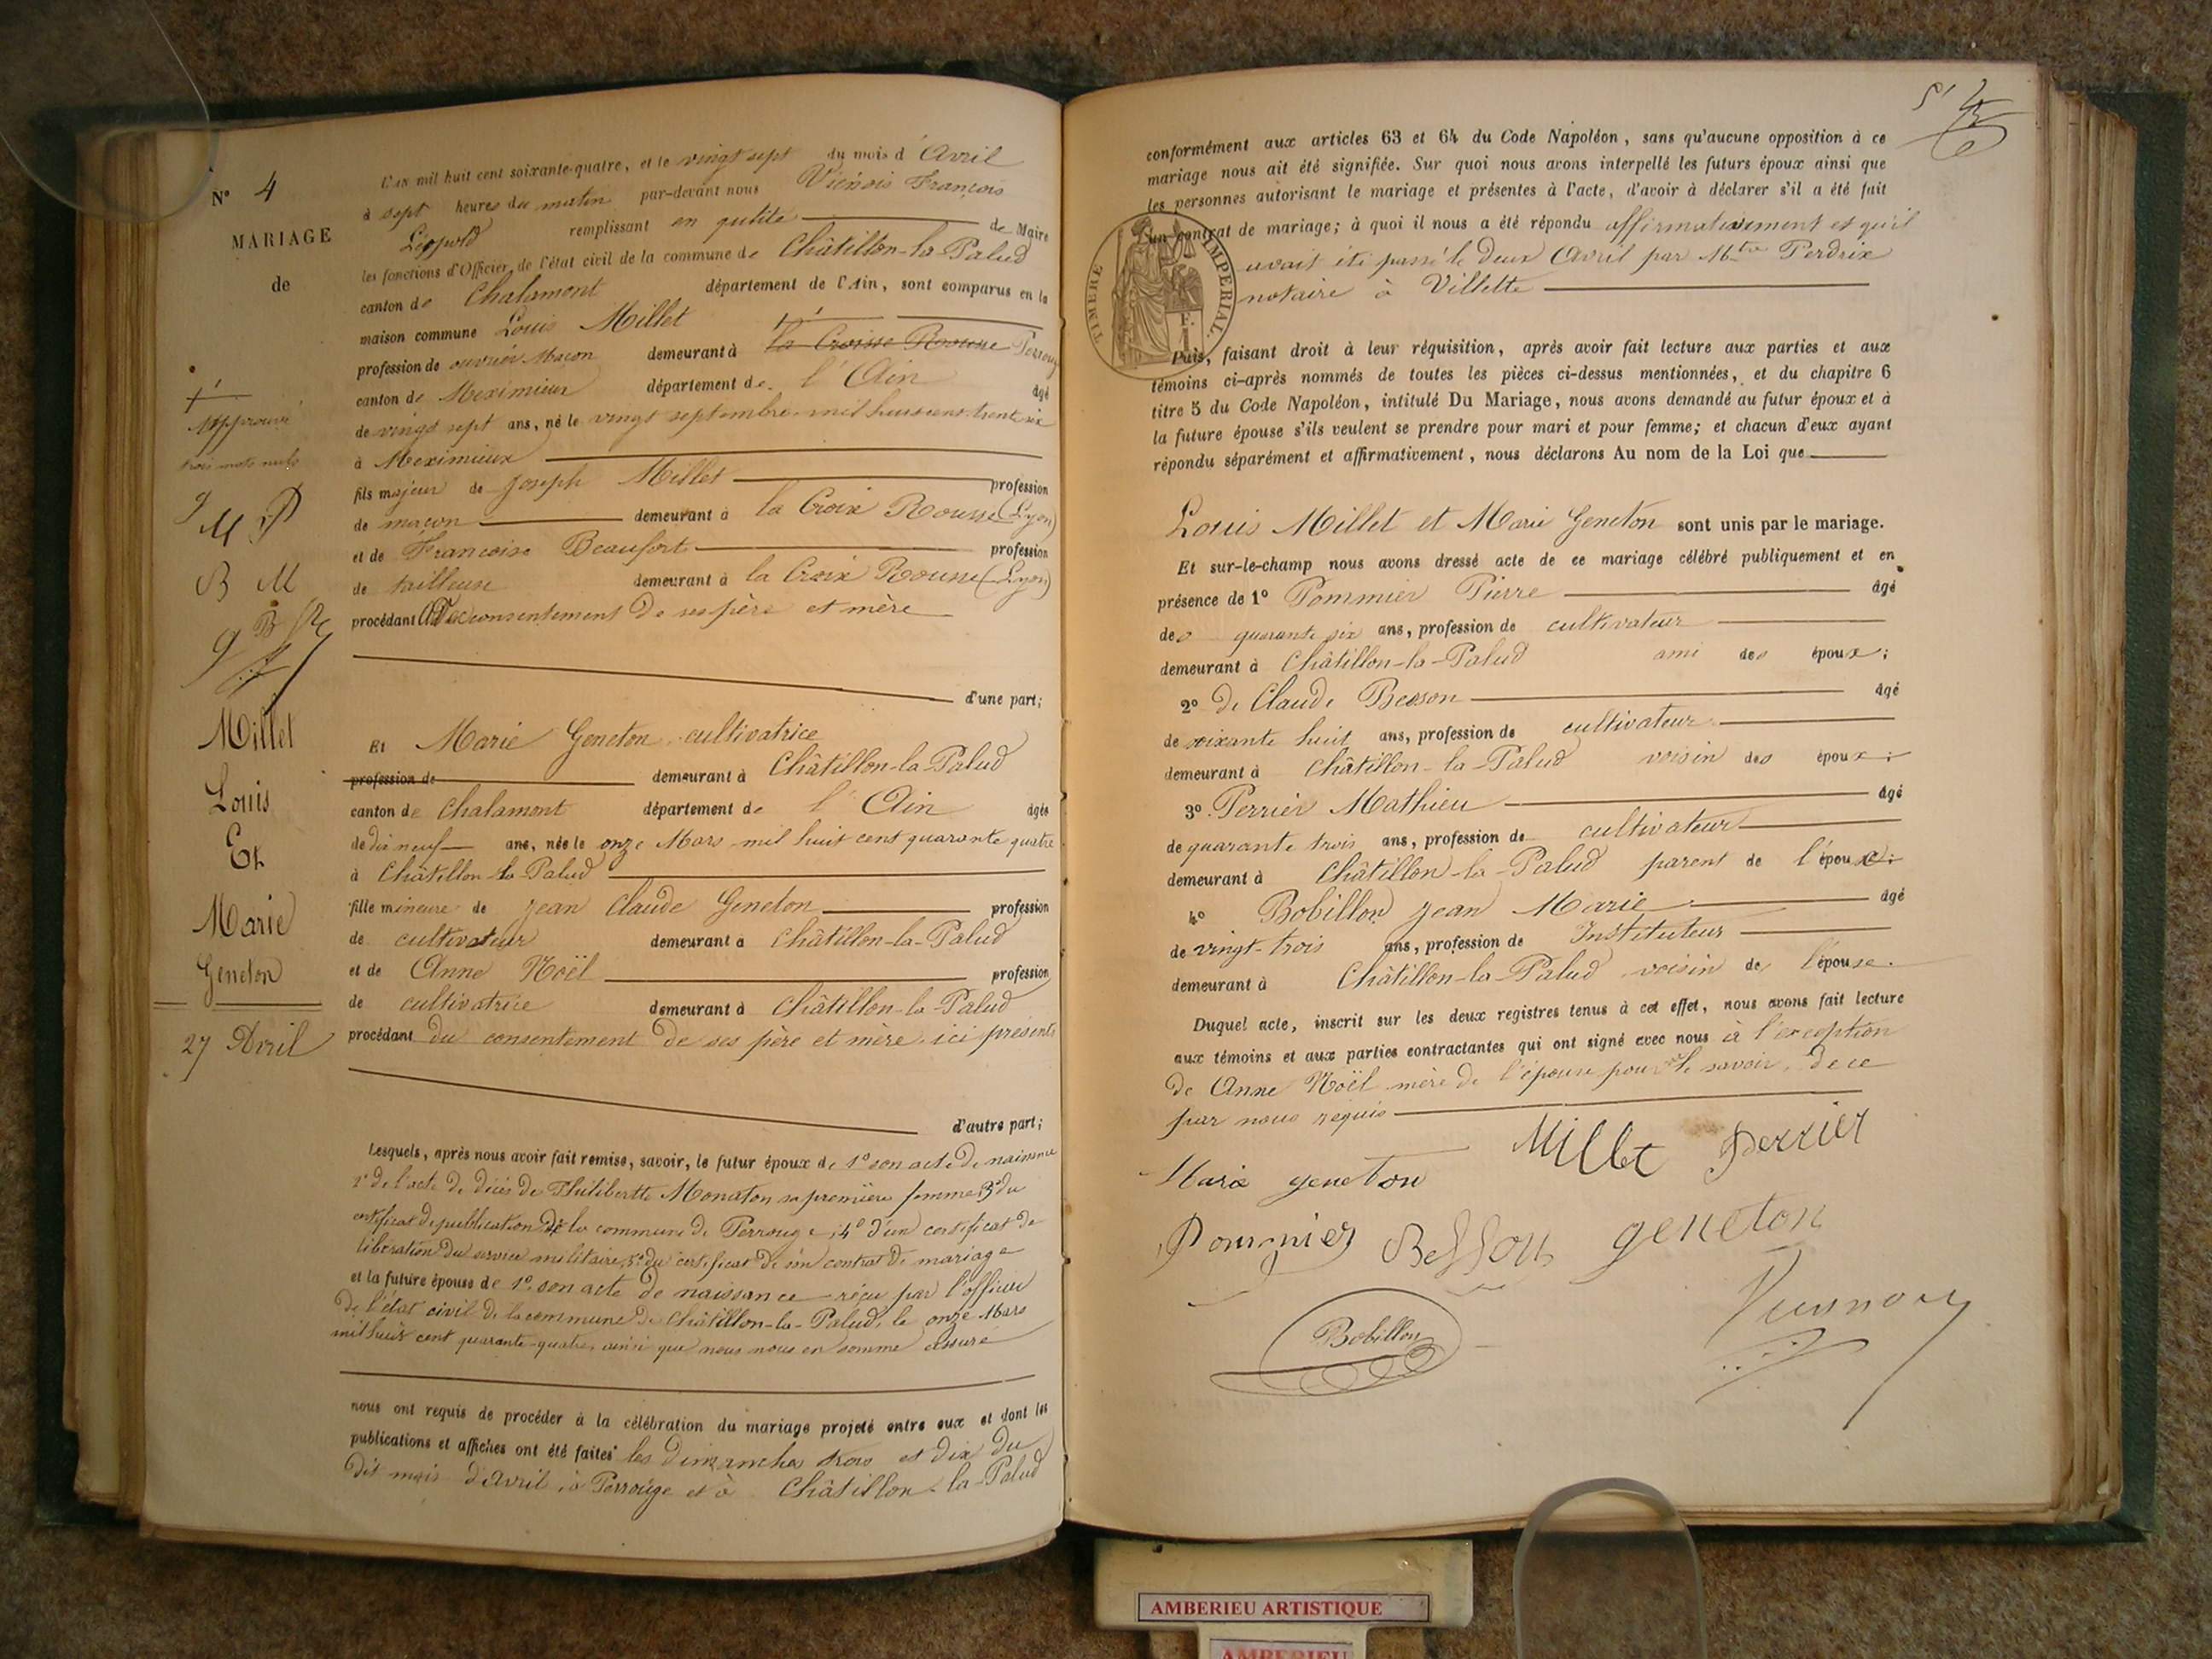 N° 4
MARIAGE
de
+
Approuvé
trois mots nuls
B M
Millet
Louis
Et
Marie
Geneton
27 Avril
L'an mil huit cent soixante-quatre, et le vingt sept du mois d'Avril
à sept heures du matin par-devant nous François
Léopold remplissant en qulité de Maire
les fonctions d'Officier de l'état civil de la commune de Châtillon-la-Palud
canton de Chalamont département de l'Ain, sont comparus en la
maison commune Louis Millet
profession de ouvrier Maçon demeurant à la Croisse Rousse Perrouge
canton de Meximieux département de l'Ain âgé
de vingt sept ans, né le vingt septembre mil huit cent trente six
à Meximieux
fils majeur de Joseph Millet profession
de maçon demeurant à la Croix Rousse (Lyon)
et de Françoise Beaufort profession
de tailleuse demeurant à la Croix Rousse (Lyon)
procédant consentement de ses père et mère
d'une part;
Et Marie Geneton cultivatrice
profession de demeurant à Châtillon-la-Palud
canton de Chalamont département de l'Ain âgée
de dix neuf ans, née le onze Mars mil huit cent quarante quatre
à Châtillon-la-Palud
fille mineure de Jean Claude Geneton profession
de cultivateur demeurant à Châtillon-la-Palud
et de Anne Noël profession
de cultivatrice demeurant à Châtillon-la-Palud
procédant du consentement de ses père et mère ici présents
d'autre part;
Lesquels, après nous avoir fait remise, savoir, le futur époux de 1° son acte de naissance
2° de l'acte de décès de Philibertte Monaton sa première femme 3° du
certificat de publication de la commune de Perrouge, 4° d'un certificat de
libération du service militaire, 5° du certificat de son contrat de mariage
et la future épouse de 1° son acte de naissance reçu par l'officier
de l'état civil de la commune de Châtillon-la-Palud, le onze Mars
mil huit cent quarante-quatre, ainsi que nous nous en somme assuré
nous ont requis de procéder à la célébration du mariage projeté entre eux et dont les
publications et affiches ont été faites les dimanches trois et dix du
dit mois d'avril, à Perrouge et à Châtillon-la-Palud
conformément aux articles 63 et 64 du Code Napoléon, sans qu'aucune opposition à ce
mariage nous ait été signifiée. Sur quoi nous avons interpellé les futurs époux ainsi que
les personnes autorisant le mariage et présentes à l'acte, d'avoir à déclarer s'il a été fait
un contrat de mariage; à quoi il nous a été répondu affirmativement et qu'il
avait été passé le deux Avril par Mtre Perdrix
notaire à Villette
TIMBRE IMPERIAL.
Puis, faisant droit à leur réquisition, après avoir fait lecture aux parties et aux
témoins ci-après nommés de toutes les pièces ci-dessus mentionnées, et du chapitre 6
titre 5 du Code Napoléon, intitulé Du Mariage, nous avons demandé au futur époux et à
la future épouse s'ils veulent se prendre pour mari et pour femme; et chacun d'eux ayant
répondu séparément et affirmativement, nous déclarons Au nom de la Loi que
Louis Millet et Marie Geneton sont unis par le mariage.
Et sur-le-champ nous avons dressé acte de ce mariage célébré publiquement et en
présence de 1° Pommier Pierre âgé
de quarante six ans, profession de cultivateur
demeurant à Châtillon-la-Palud ami des époux;
2° de Claude Besson âgé
de soixante huit ans, profession de cultivateur
demeurant à Châtillon-la-Palud voisin des époux;
3° Perrier Mathieu âgé
de quarante trois ans, profession de cultivateur
demeurant à Châtillon-la-Palud parent de l'épouse;
4° Bobillon Jean Marie âgé
de vingt-trois ans, profession de Instituteur
demeurant à Châtillon-la-Palud voisin de l'épouse.
Duquel acte, inscrit sur les deux registres tenus à cet effet, nous avons fait lecture
aux témoins et aux parties contractantes qui ont signé avec nous à l'exception
de Anne Noël mère de l'épouse pour ne le savoir, de ce
par nous requis
Millet Perrier
Marie geneton
Pommier Besson geneton
Bobillon
AMBERIEU ARTISTIQUE
AMBERIEU